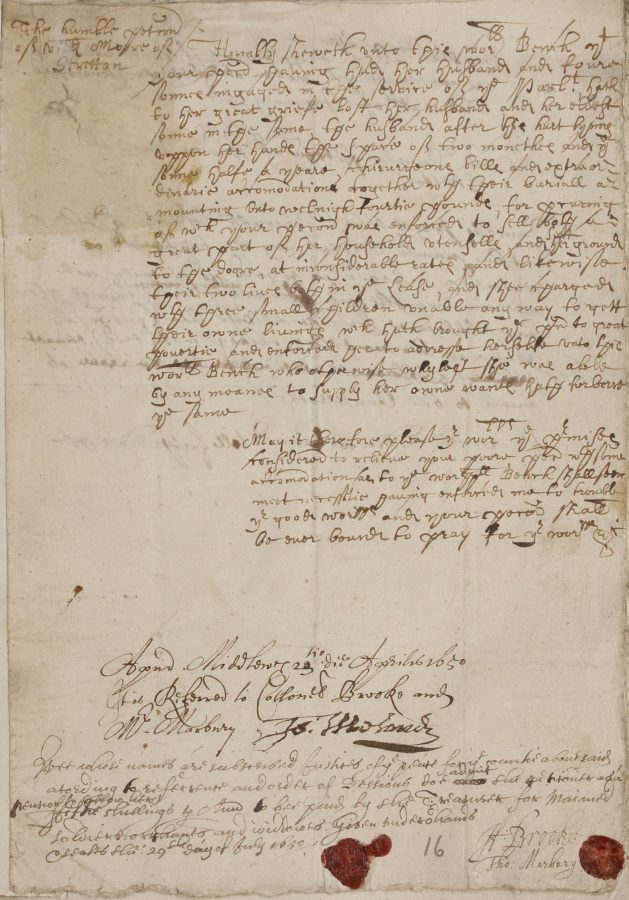 The humble peticon
of Moore of
Stretton
Humbly sheweth unto this worll Bench yt
your peticr having had her husband and foure
sonnes ingaged in the service of ye Parlt: hath
to her great griefe lost her husband and her eldest
sonne in the same, the husband after his hurt lying
uppon her hands the space of two monethes and ye
sonne halfe a yeare, Chirurgeons bills and extraor-
dinarie accomodations together with their buriall a-
mounting unto welnigh Fourtie pounds, for procuring
of wch your peticr was enforced to sell both a
great part of her household utensells and her ground
to the doore, at inconsiderable rates and likewise
their two lives both in ye Lease, and shee charged
with three small Children unable any way to gett
their owne livinge wch hath brought ye to great
povertie and enforced her to addresse herselfe unto this
worll Bench who otherwise whylest shee was able
by any meanes to supply her owne wants hath forborne
ye same
May it therefore please yr worps ye premisses
Considered to releive your poore petr with some
accomodation as to ye worll Bench shall seem
meet necessitie having enforced me to trouble
yr good worpps and your peticr shall
be ever bound to pray for yr worpps &c
Apud Middlewch die Aprilis 1650
It is Referred to Collonell Brooke and
Mr Marbury
Wee whose names are subscribed Justices of peace for ye countie abovesaid
according to reference and order of Sessions doe adjudge this petitioner a
pencon of shillings p Ann to bee paid by the Treasurer for Maimed
Soldiers and widdowes Given under or hands
& seales this 29th day of July 1650
H Brooke
Tho: Merbury
16